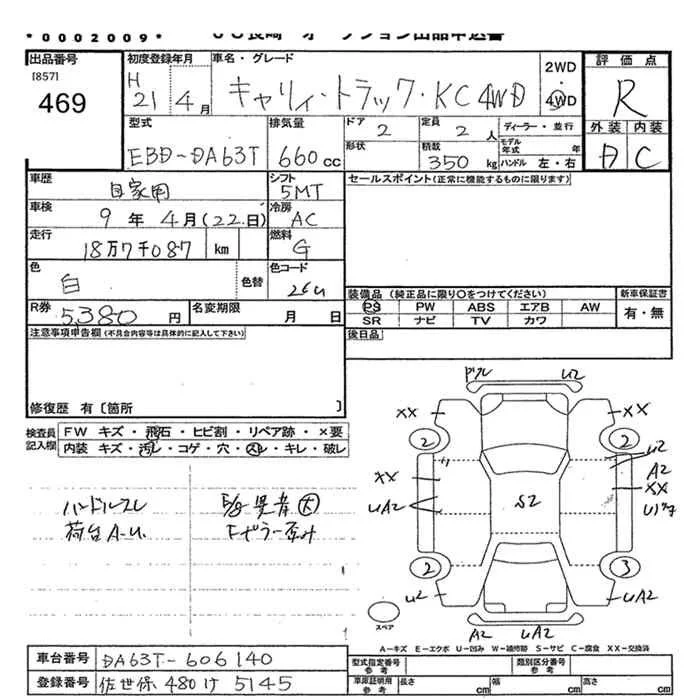 *0002009*
JU長崎 オークション出品申込書
出品番号
[857]
469
初度登録年月
H 21年 4月
車名・グレード
キャリィ・トラック・KC 4WD
2WD
・
4WD
評価点
R
型式
EBD-DA63T
排気量
660cc
ドア
2
形状
定員
2人
積載
350kg
ディーラー・並行
モデル年式 年
ハンドル 左・右
外装
D
内装
C
車歴
自家用
シフト
5MT
車検
9年4月(22.日)
冷房
AC
走行
18万7千087 km
燃料
G
色
白
色替
色コード
26U
R券
5,380円
名変期限
月 日
セールスポイント(正常に機能するものに限ります)
装備品 (純正品に限り○をつけてください)
PS PW ABS エアB AW
SR ナビ TV カワ
新車保証書
有・無
後日品
注意事項申告欄(不具合内容等は具体的に記入して下さい)
修復歴 有〔箇所 〕
検査員記入欄
FW キズ・飛石・ヒビ割・リペア跡・×要
内装 キズ・汚レ・コゲ・穴・スレ・キレ・破レ
ハンドルスレ
荷台A-U.
E/g異音大
Fピラー歪み
U2
XX XX
2 2
U2
XX
A2
XX
UA2
S2
2 3
U2
UA2
A2 UA2
スペア
A-キズ E-エクボ U-凹み W-補修跡 S-サビ C-腐食 XX-交換済
車台番号
DA63T-606140
登録番号
佐世保 480 け 5145
型式指定番号
参考
類別区分番号
参考
車庫証明用
参考
長さ cm
幅 cm
高さ cm